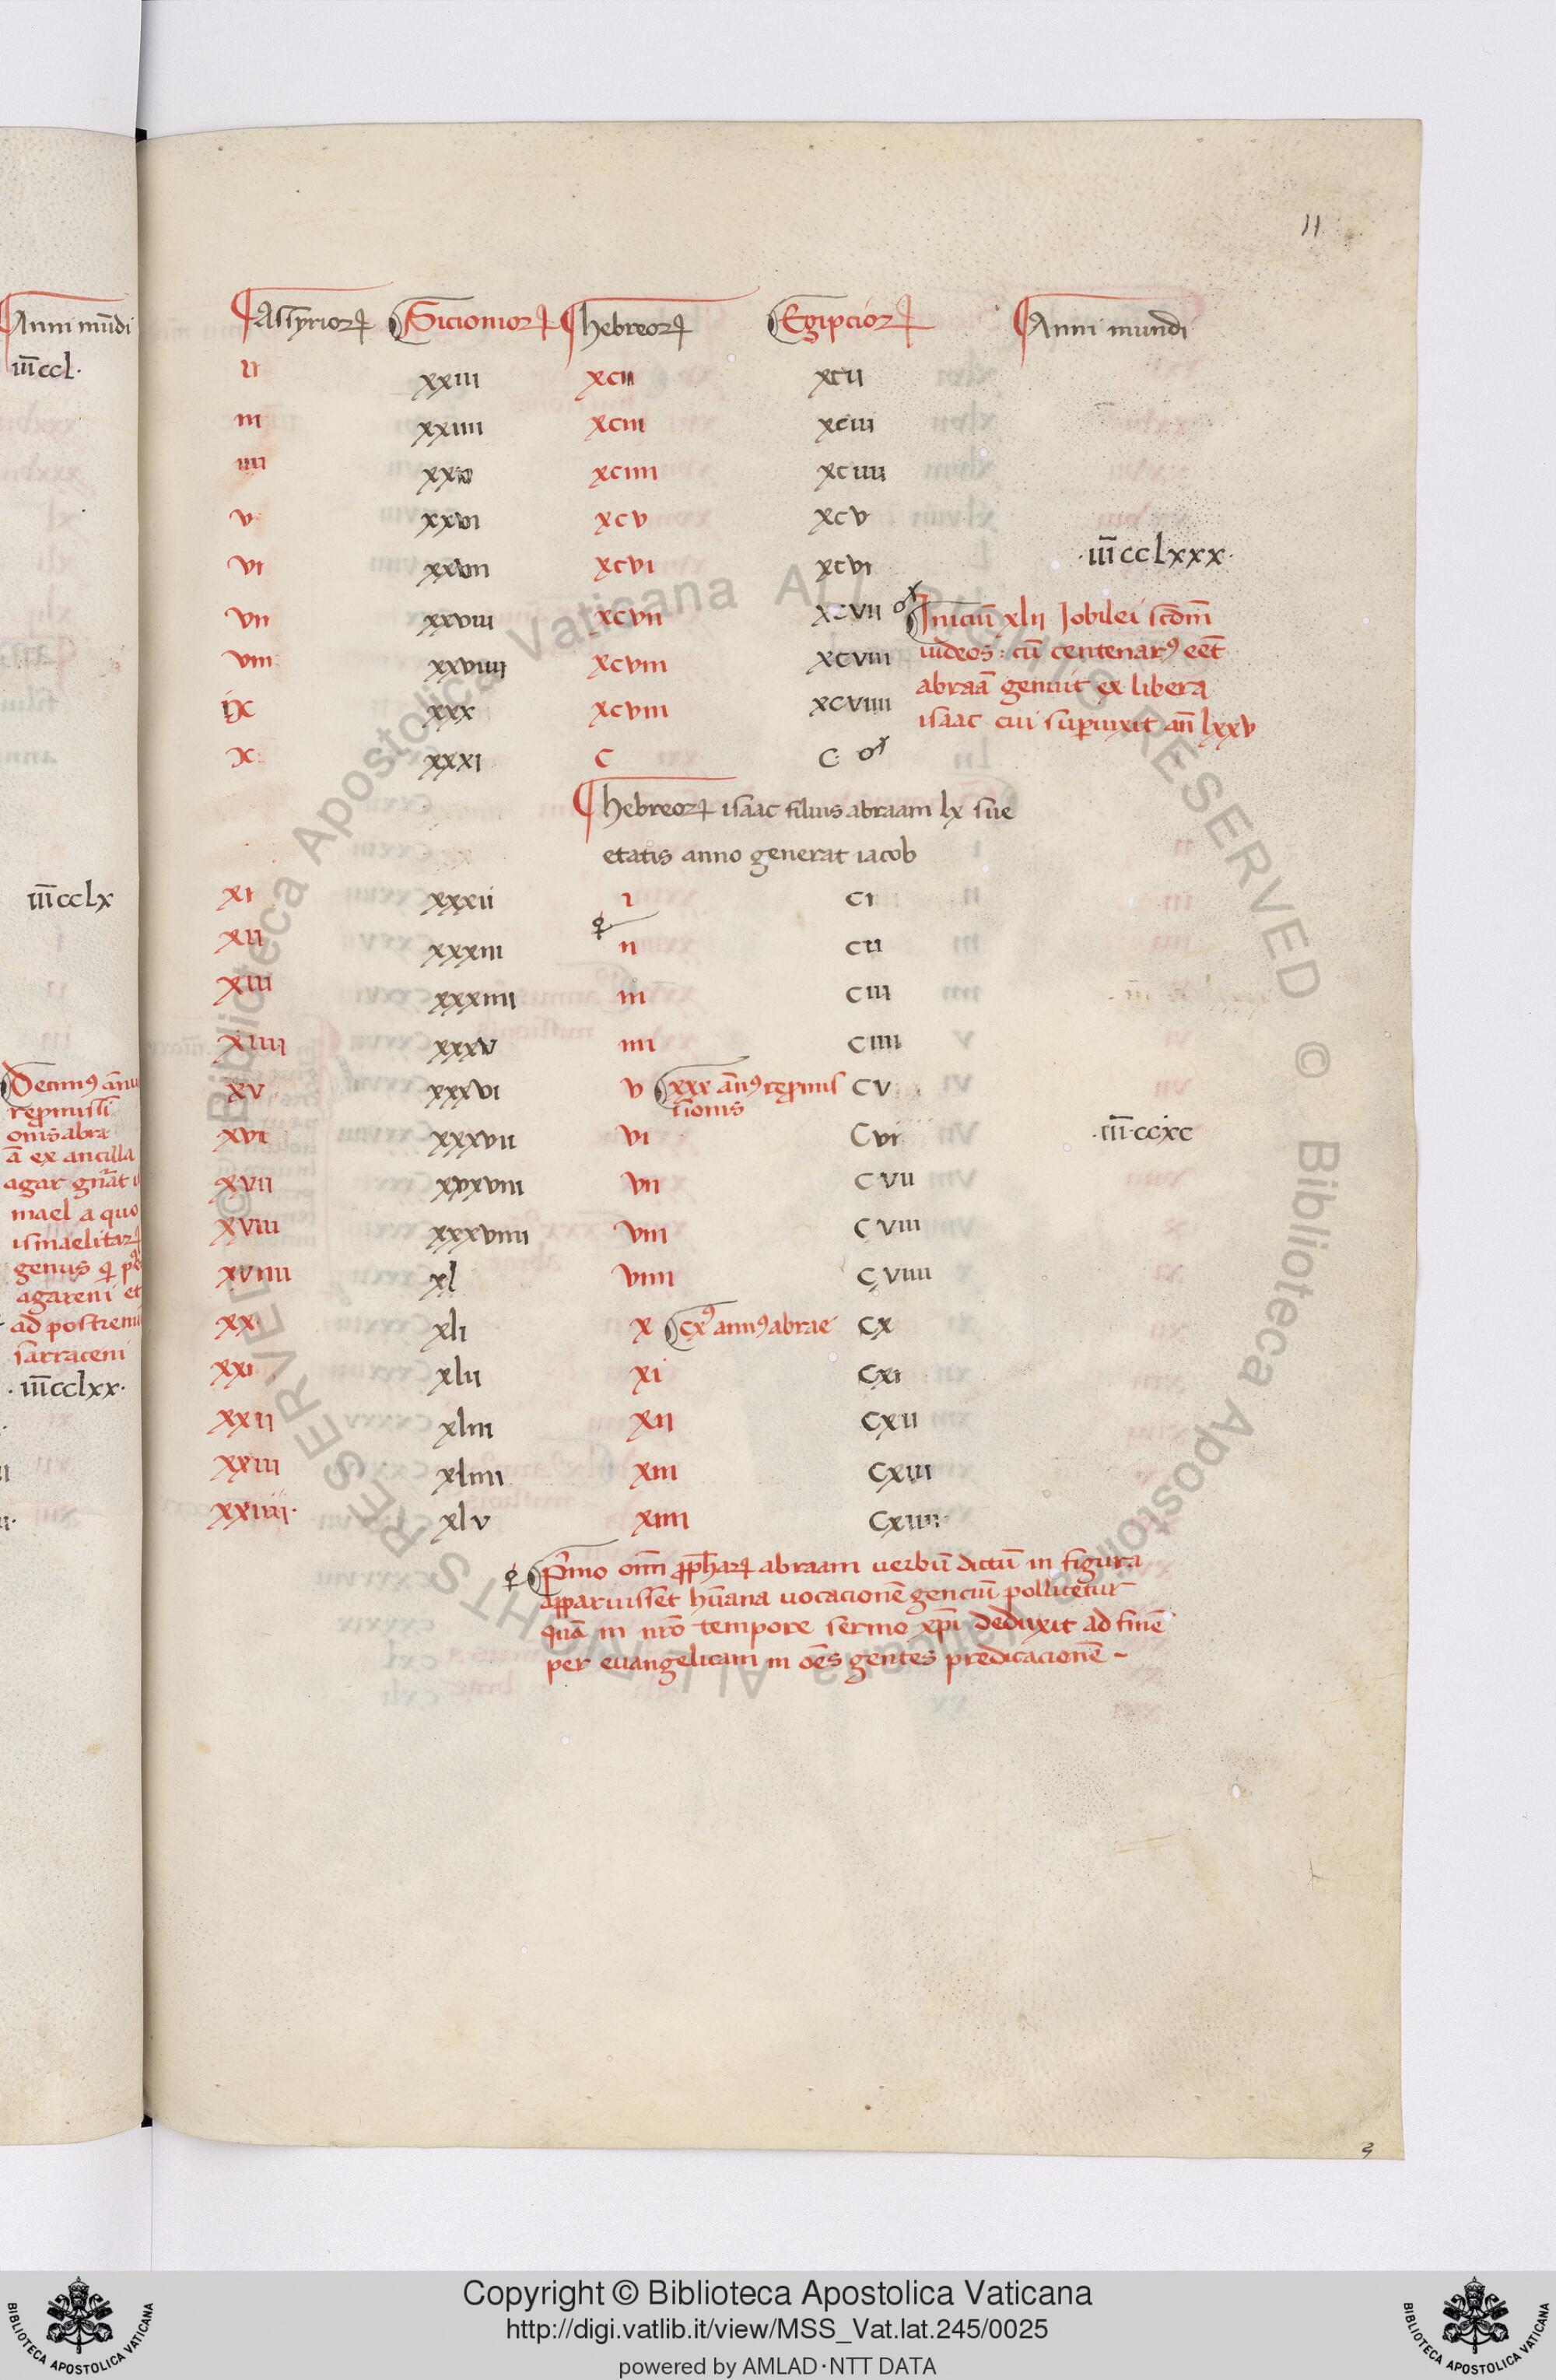 Anni mūdi
iii̅ccl·
iii̅cclx
Decimꝯ ānu
repmissi
onis abra
ā ex ancilla
agar gnāt i
mael a quo
ismaelitaꝝ
genus
agareni et
ad postremū
sarraceni
·iii̅cclxx·
11
Assyrioꝝ Sicionioꝝ hebreoꝝ Egipcioꝝ Anni mundi
ii xxiii xcii xcii
iii xxiiii xciii xciii
iiii xxv xciiii xciiii
v xxvi xcv xcv
·iii̅cclxxx·
vi xxvii xcvi xcvi
vii xxviii xcvii xcvii
Iniciū xlii Jobilei scdm̄
viii xxviiii xcviii xcviii
iudeos : cū centenarꝯ eēt
abraā genuit ex libera
ix xxx xcviiii xcviiii
isaac cui supuixit an̄ lxxv
x xxxi c c ♂
hebreoꝝ isaac filius abraam lx sue
etatis anno generat iacob
xi xxxii i ci
♀
xii xxxiii ii cii
xiii xxxiiii iii ciii
xiiii xxxv iiii ciiii
xv xxxvi v xxx ānꝯ repmis cv
sionis
xvi xxxvii vi cvi ·iii̅·ccxc
xvii xxxviii vii cvii
xviii xxxviiii viii cviii
xviiii xl viiii cviiii
xx xli x cxꝯ annꝯ abrae cx
xxi xlii xi cxi
xxii xliii xii cxii
xxiii xliiii xiii cxiii
xxiiii· xlv xiiii cxiiii
♀ Pͥmo om̄ ꝓph̄aꝝ abraam uerbū dictū in figura
apparuisset hūana uocacionē genciū pollicetur
quā in nr̄o tempore sermo xp̄i deduxit ad finē
per euangelicam in oēs gentes predicacionē -
Copyright © Biblioteca Apostolica Vaticana
http://digi.vatlib.it/view/MSS_Vat.lat.245/0025
powered by AMLAD·NTT DATA
BIBLIOTECA APOSTOLICA VATICANA
BIBLIOTECA APOSTOLICA VATICANA
© Biblioteca Apostolica Vaticana ALL RIGHTS RESERVED © Biblioteca Apostolica Vaticana ALL RIGHTS RESERVED